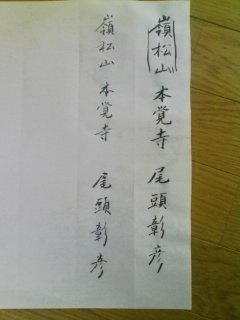 嶺松山 本覚寺 尾頭彰彦
嶺松山 本覚寺 尾頭彰彦